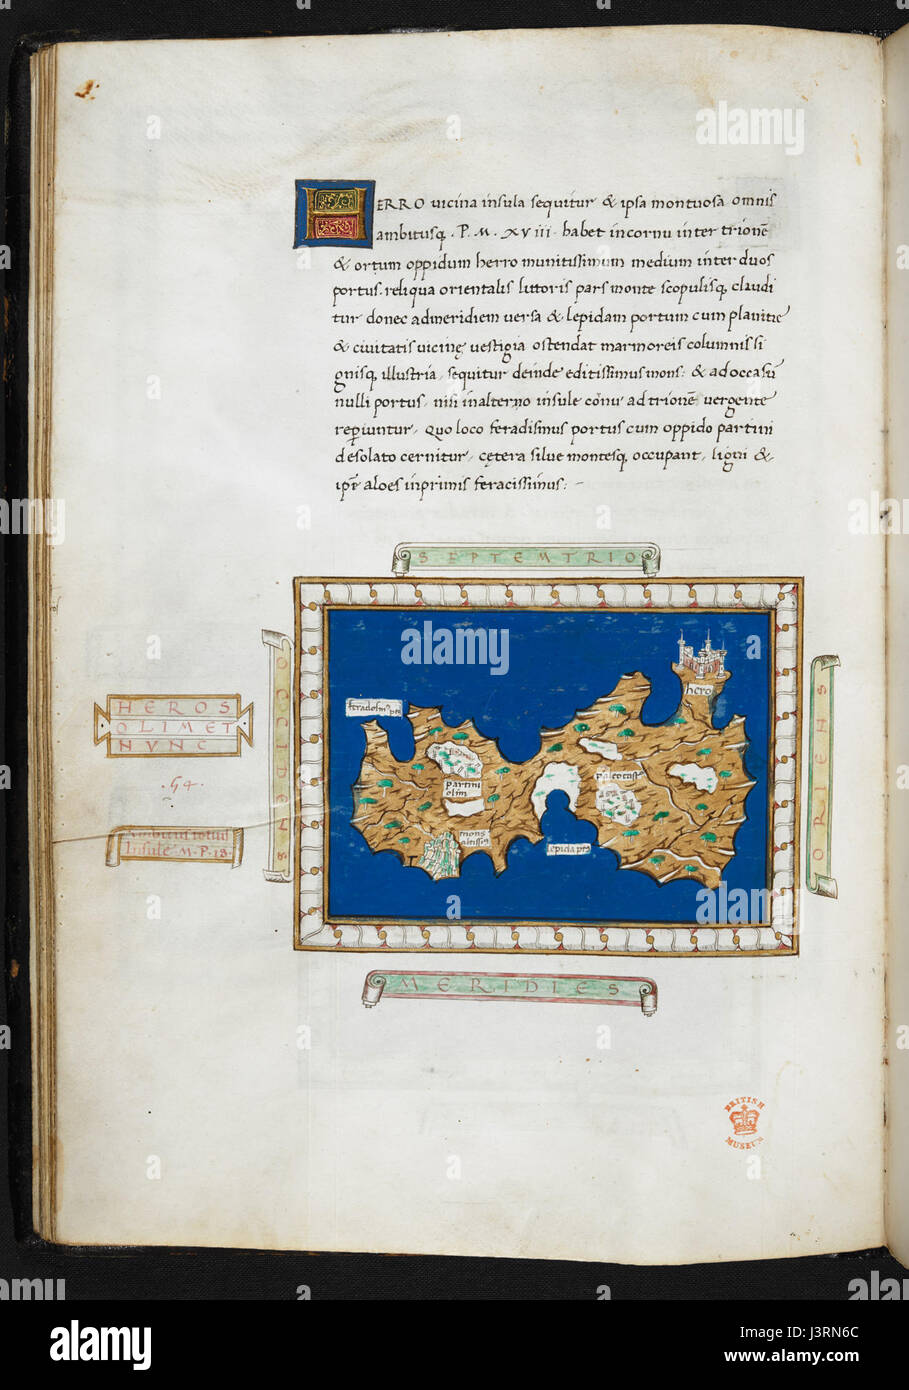 HERRO vicina insula sequitur & ipsa montuosa omnis
ambitusq. P. M. XVIII. habet in cornu inter trionē
& ortum oppidum herro munitissimum medium inter duos
portus. reliqua orientalis littoris pars monte scopulisq. claudi
tur donec ad meridiem versa & lepidam portum cum planitie
& civitatis vicinę vestigia ostendat marmoreis columnis si
gnisq. illustria, sequitur deinde editissimus mons: & ad occasū
nulli portus, nisi in alterno insule cōnu ad trionē vergente
reperiuntur, Quo loco feradismus portus cum oppido partini
desolato cernitur, cętera silve montesq. occupant, ligni &
ipsę aloes inprimis feracissimus: ~
SEPTEMTRIO
OCCIDENS
HEROS
OLIM ET
NVNC
54
Ambitus totius
Insule M.P.18.
feradism9 pts
hero
partini
olim
paleocast
mons
altissi9
lepida pts
ORIENS
MERIDIES
BRITISH
MUSEUM
alamy
a
alamy stock photo
J3RN6C
www.alamy.com